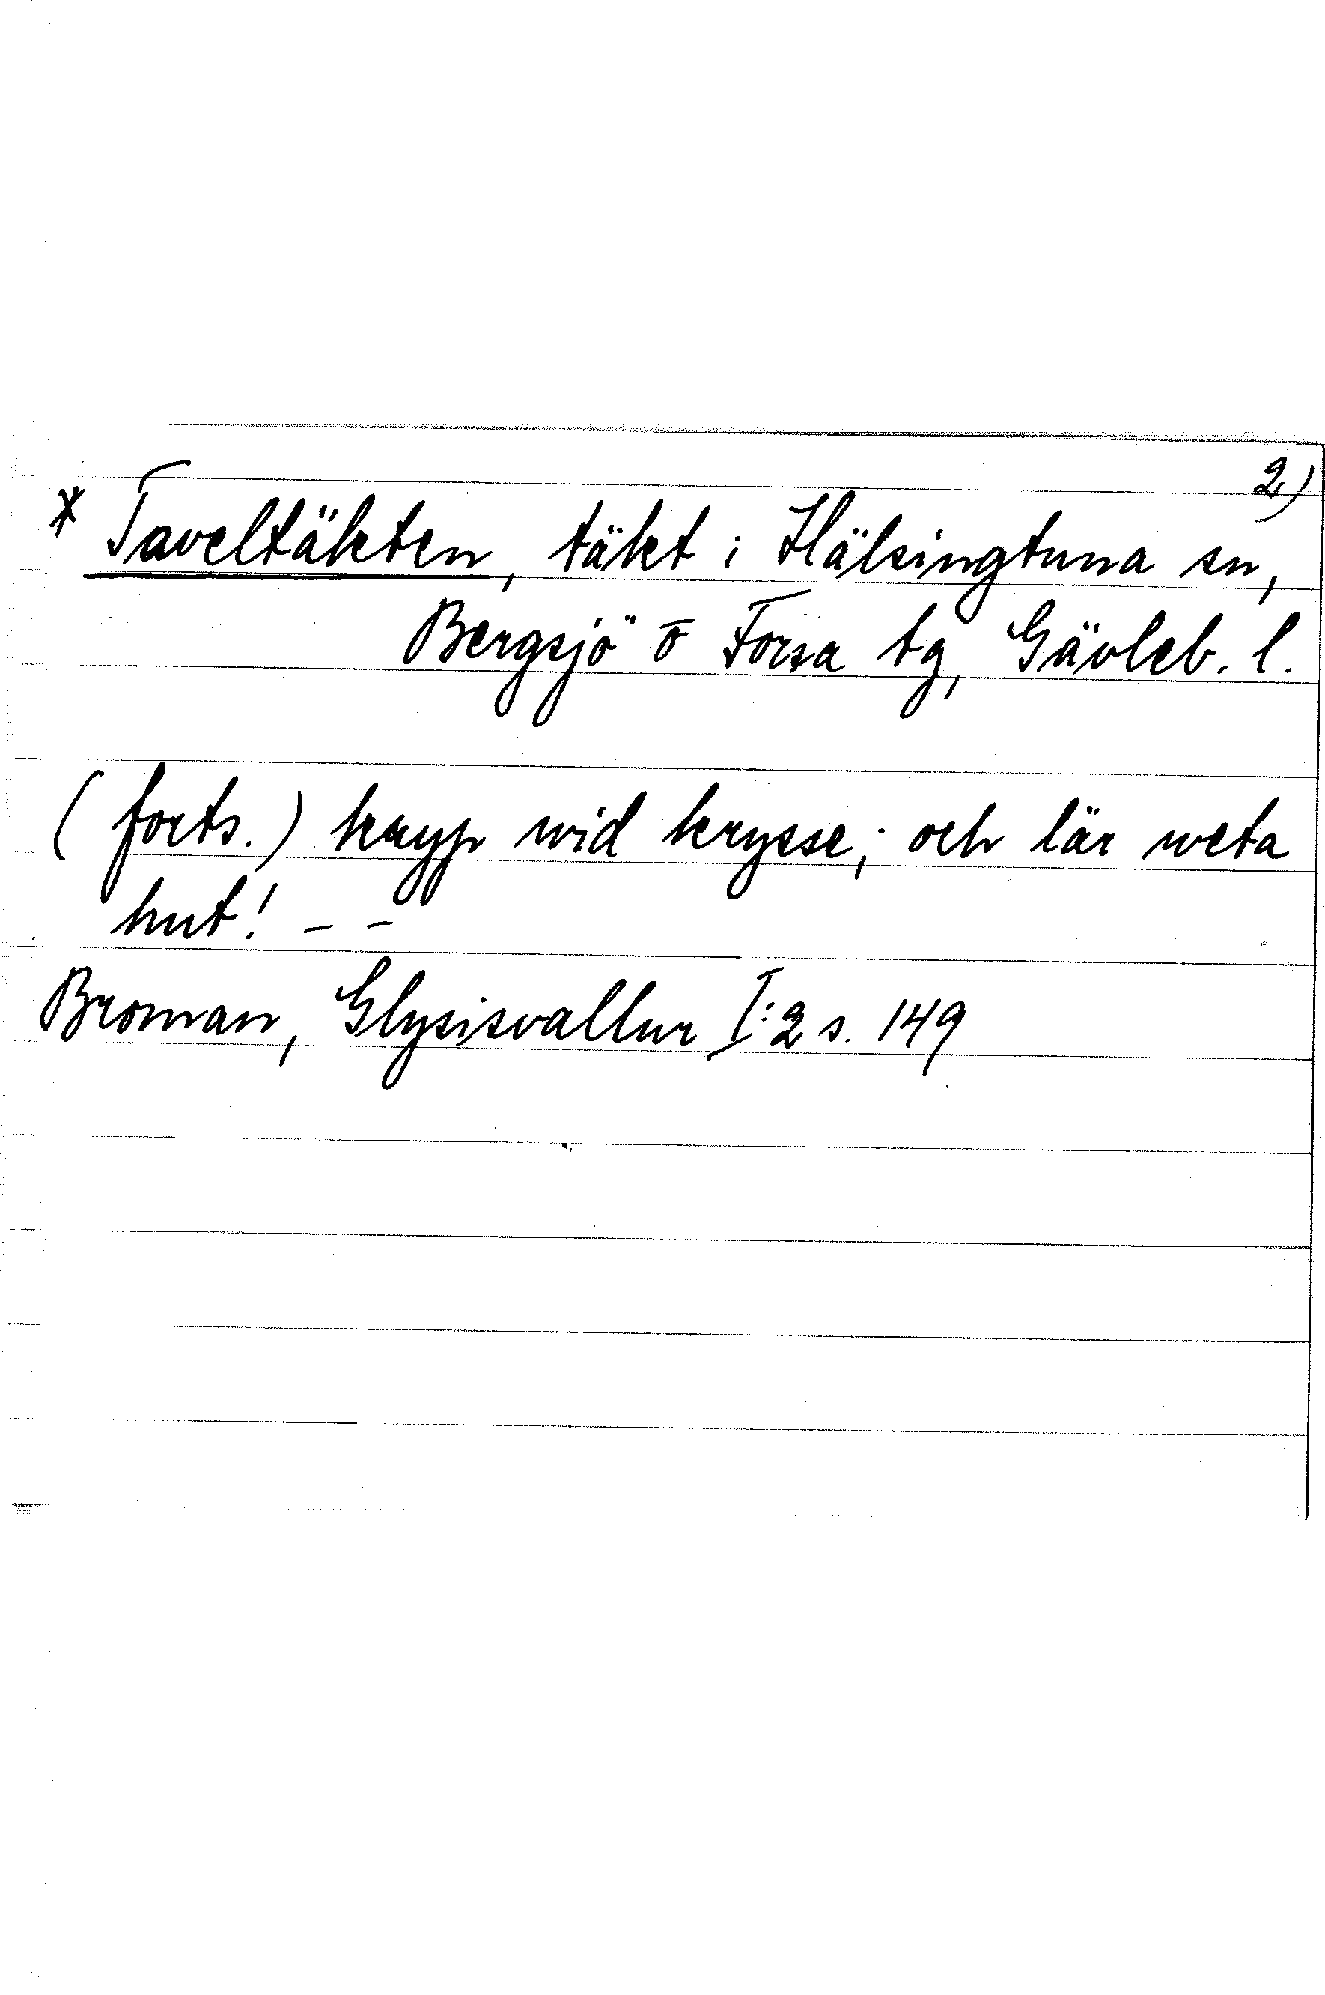 2)
* Taveltäkten, täkt i Hälsingtuna sn,
Bergsjö o Forsa tg, Gävleb. l.
(forts.) kryp wid krysse; och lär weta
hut! – –
Broman, Glysisvallur I:2 s. 149